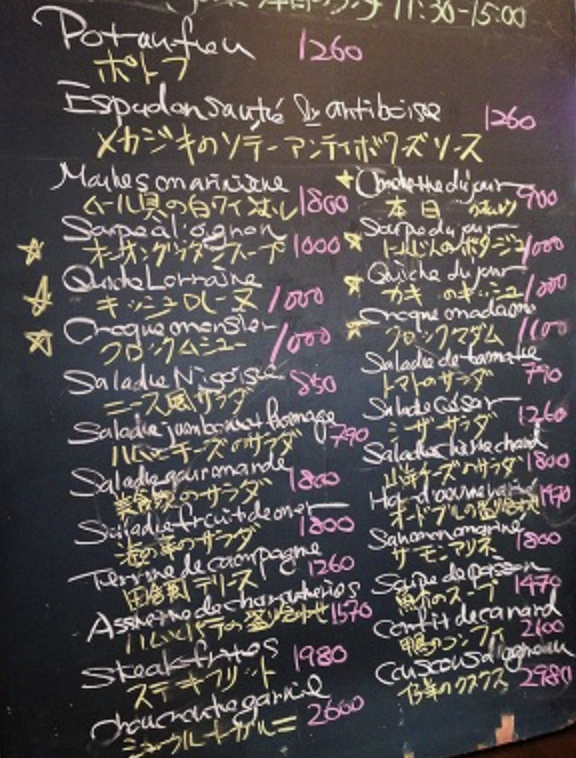 11:30-15:00
Pot au feu 1260
ポトフ
Espadon sauté à antiboise 1260
メカジキのソテー アンティボワーズソース
Moules marinière
ムール貝の白ワイン蒸し 1800
Soupe à l'oignon
オニオングラタンスープ 1000
Quiche Lorraine
キッシュロレーヌ 1000
Croque monsier
クロックムシュー 1000
Salade Niçoise 850
ニース風サラダ
Salade jambon et fromage 790
ハムとチーズのサラダ
Salade gourmande 1800
美食家のサラダ
Salade fruit de mer 1800
海の幸のサラダ
Terrine de campagne 1260
田舎風テリーヌ
Assiette de charcuteries
ハムとパテの盛り合わせ 1570
Steak frites 1980
ステーキフリット
Choucroute garnie 2600
シュークルートガルニ
du jour 900
本日
Soupe du jour
にんじんのポタージュ 1000
Quiche du jour
カキ のキッシュ 1000
Croque madame
クロックマダム 1100
Salade de tomate
トマトのサラダ 790
Salade César 1260
シーザーサラダ
Salade chèvre chaud
山羊チーズのサラダ 1800
Hors d'oeuvre varié 1470
オードブルの盛り合わせ
Saumon mariné 1800
サーモンマリネ
Soupe de poisson 1470
魚のスープ
Confit de canard 2100
鴨のコンフィ
Couscous d'agneau
仔羊のクスクス 2980